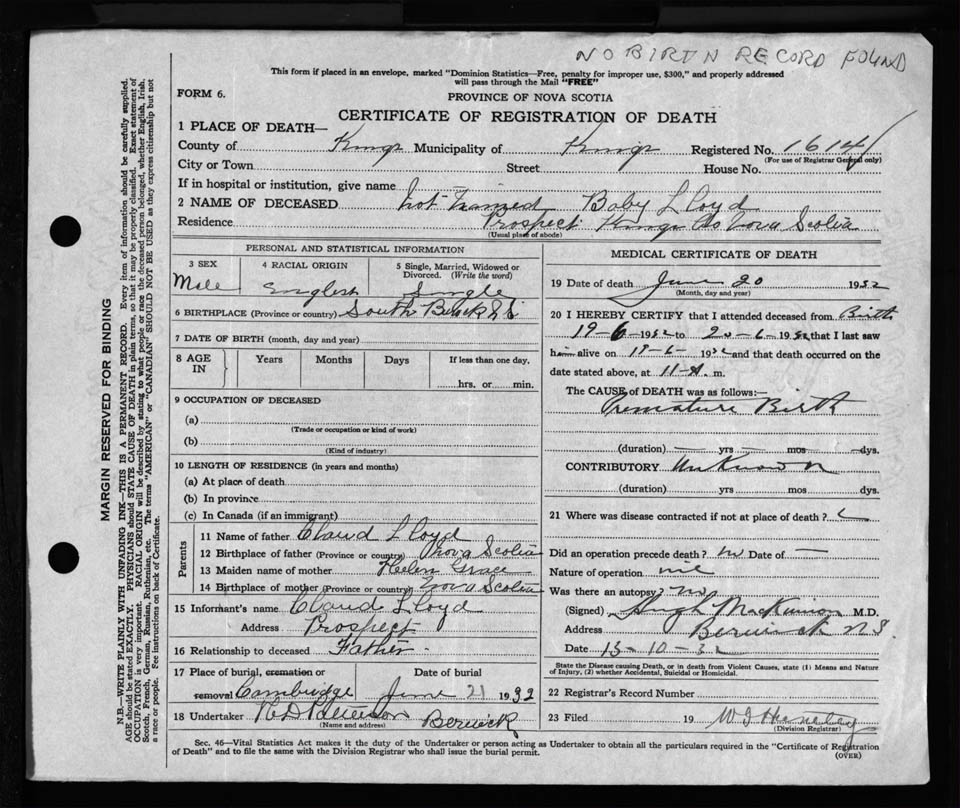 NO BIRTH RECORD FOUND
This form if placed in an envelope, marked "Dominion Statistics—Free, penalty for improper use, $300," and properly addressed
will pass through the Mail "FREE"
FORM 6.
PROVINCE OF NOVA SCOTIA
CERTIFICATE OF REGISTRATION OF DEATH
1 PLACE OF DEATH—
County of Kings Municipality of Kings Registered No. 1614
(For use of Registrar General only)
City or Town Street House No.
If in hospital or institution, give name
2 NAME OF DECEASED not named Baby Lloyd
Residence Prospect Kings Co Nova Scotia
(Usual place of abode)
PERSONAL AND STATISTICAL INFORMATION
3 SEX 4 RACIAL ORIGIN 5 Single, Married, Widowed or
Divorced. (Write the word)
Male English Single
6 BIRTHPLACE (Province or country) South
7 DATE OF BIRTH (month, day and year)
8 AGE IN Years Months Days If less than one day.
hrs. or min.
9 OCCUPATION OF DECEASED
(a)
(Trade or occupation or kind of work)
(b)
(Kind of industry)
10 LENGTH OF RESIDENCE (in years and months)
(a) At place of death
(b) In province
(c) In Canada (if an immigrant)
Parents
11 Name of father Claud Lloyd
12 Birthplace of father (Province or country) Nova Scotia
13 Maiden name of mother Helen Grace
14 Birthplace of mother (Province or country) Nova Scotia
15 Informant's name Claud Lloyd
Address Prospect
16 Relationship to deceased Father
17 Place of burial, cremation or Date of burial
removal Cambridge June 21 1932
18 Undertaker Berwick
(Name and address)
MEDICAL CERTIFICATE OF DEATH
19 Date of death June 20 1932
(Month, day and year)
20 I HEREBY CERTIFY that I attended deceased from Birth
19-6-1932 to 20-6-1932 that I last saw
him alive on 19-6-1932 and that death occurred on
the date stated above, at 11-A.m.
The CAUSE of DEATH was as follows:—
Premature Birth
(duration) yrs mos dys.
CONTRIBUTORY Unknown
(duration) yrs mos dys.
21 Where was disease contracted if not at place of death?
Did an operation precede death? no Date of —
Nature of operation
Was there an autopsy? no
(Signed) Hugh MacKinnon M.D.
Address Berwick N.S.
Date 13-10-32
State the Disease causing Death, or in death from Violent Causes, state (1) Means and Nature
of Injury, (2) whether Accidental, Suicidal or Homicidal.
22 Registrar's Record Number
23 Filed 19
(Division Registrar)
Sec. 46—Vital Statistics Act makes it the duty of the Undertaker or person acting as Undertaker to obtain all the particulars required in the "Certificate of Registration
of Death" and to file the same with the Division Registrar who shall issue the burial permit.
(OVER)
MARGIN RESERVED FOR BINDING
N.B.—WRITE PLAINLY WITH UNFADING INK—THIS IS A PERMANENT RECORD. Every item of information should be carefully supplied.
AGE should be stated EXACTLY. PHYSICIANS should STATE CAUSE OF DEATH in plain terms, so that it may be properly classified. Exact statement of
OCCUPATION is very important. RACIAL ORIGIN will be described by stating to what people or race the deceased person belonged, whether English, Irish,
Scotch, French, German, Russian, Ruthenian, etc. The terms "AMERICAN" or "CANADIAN" SHOULD NOT BE USED as they express citizenship but not
a race or people. Fee instructions on back of Certificate.